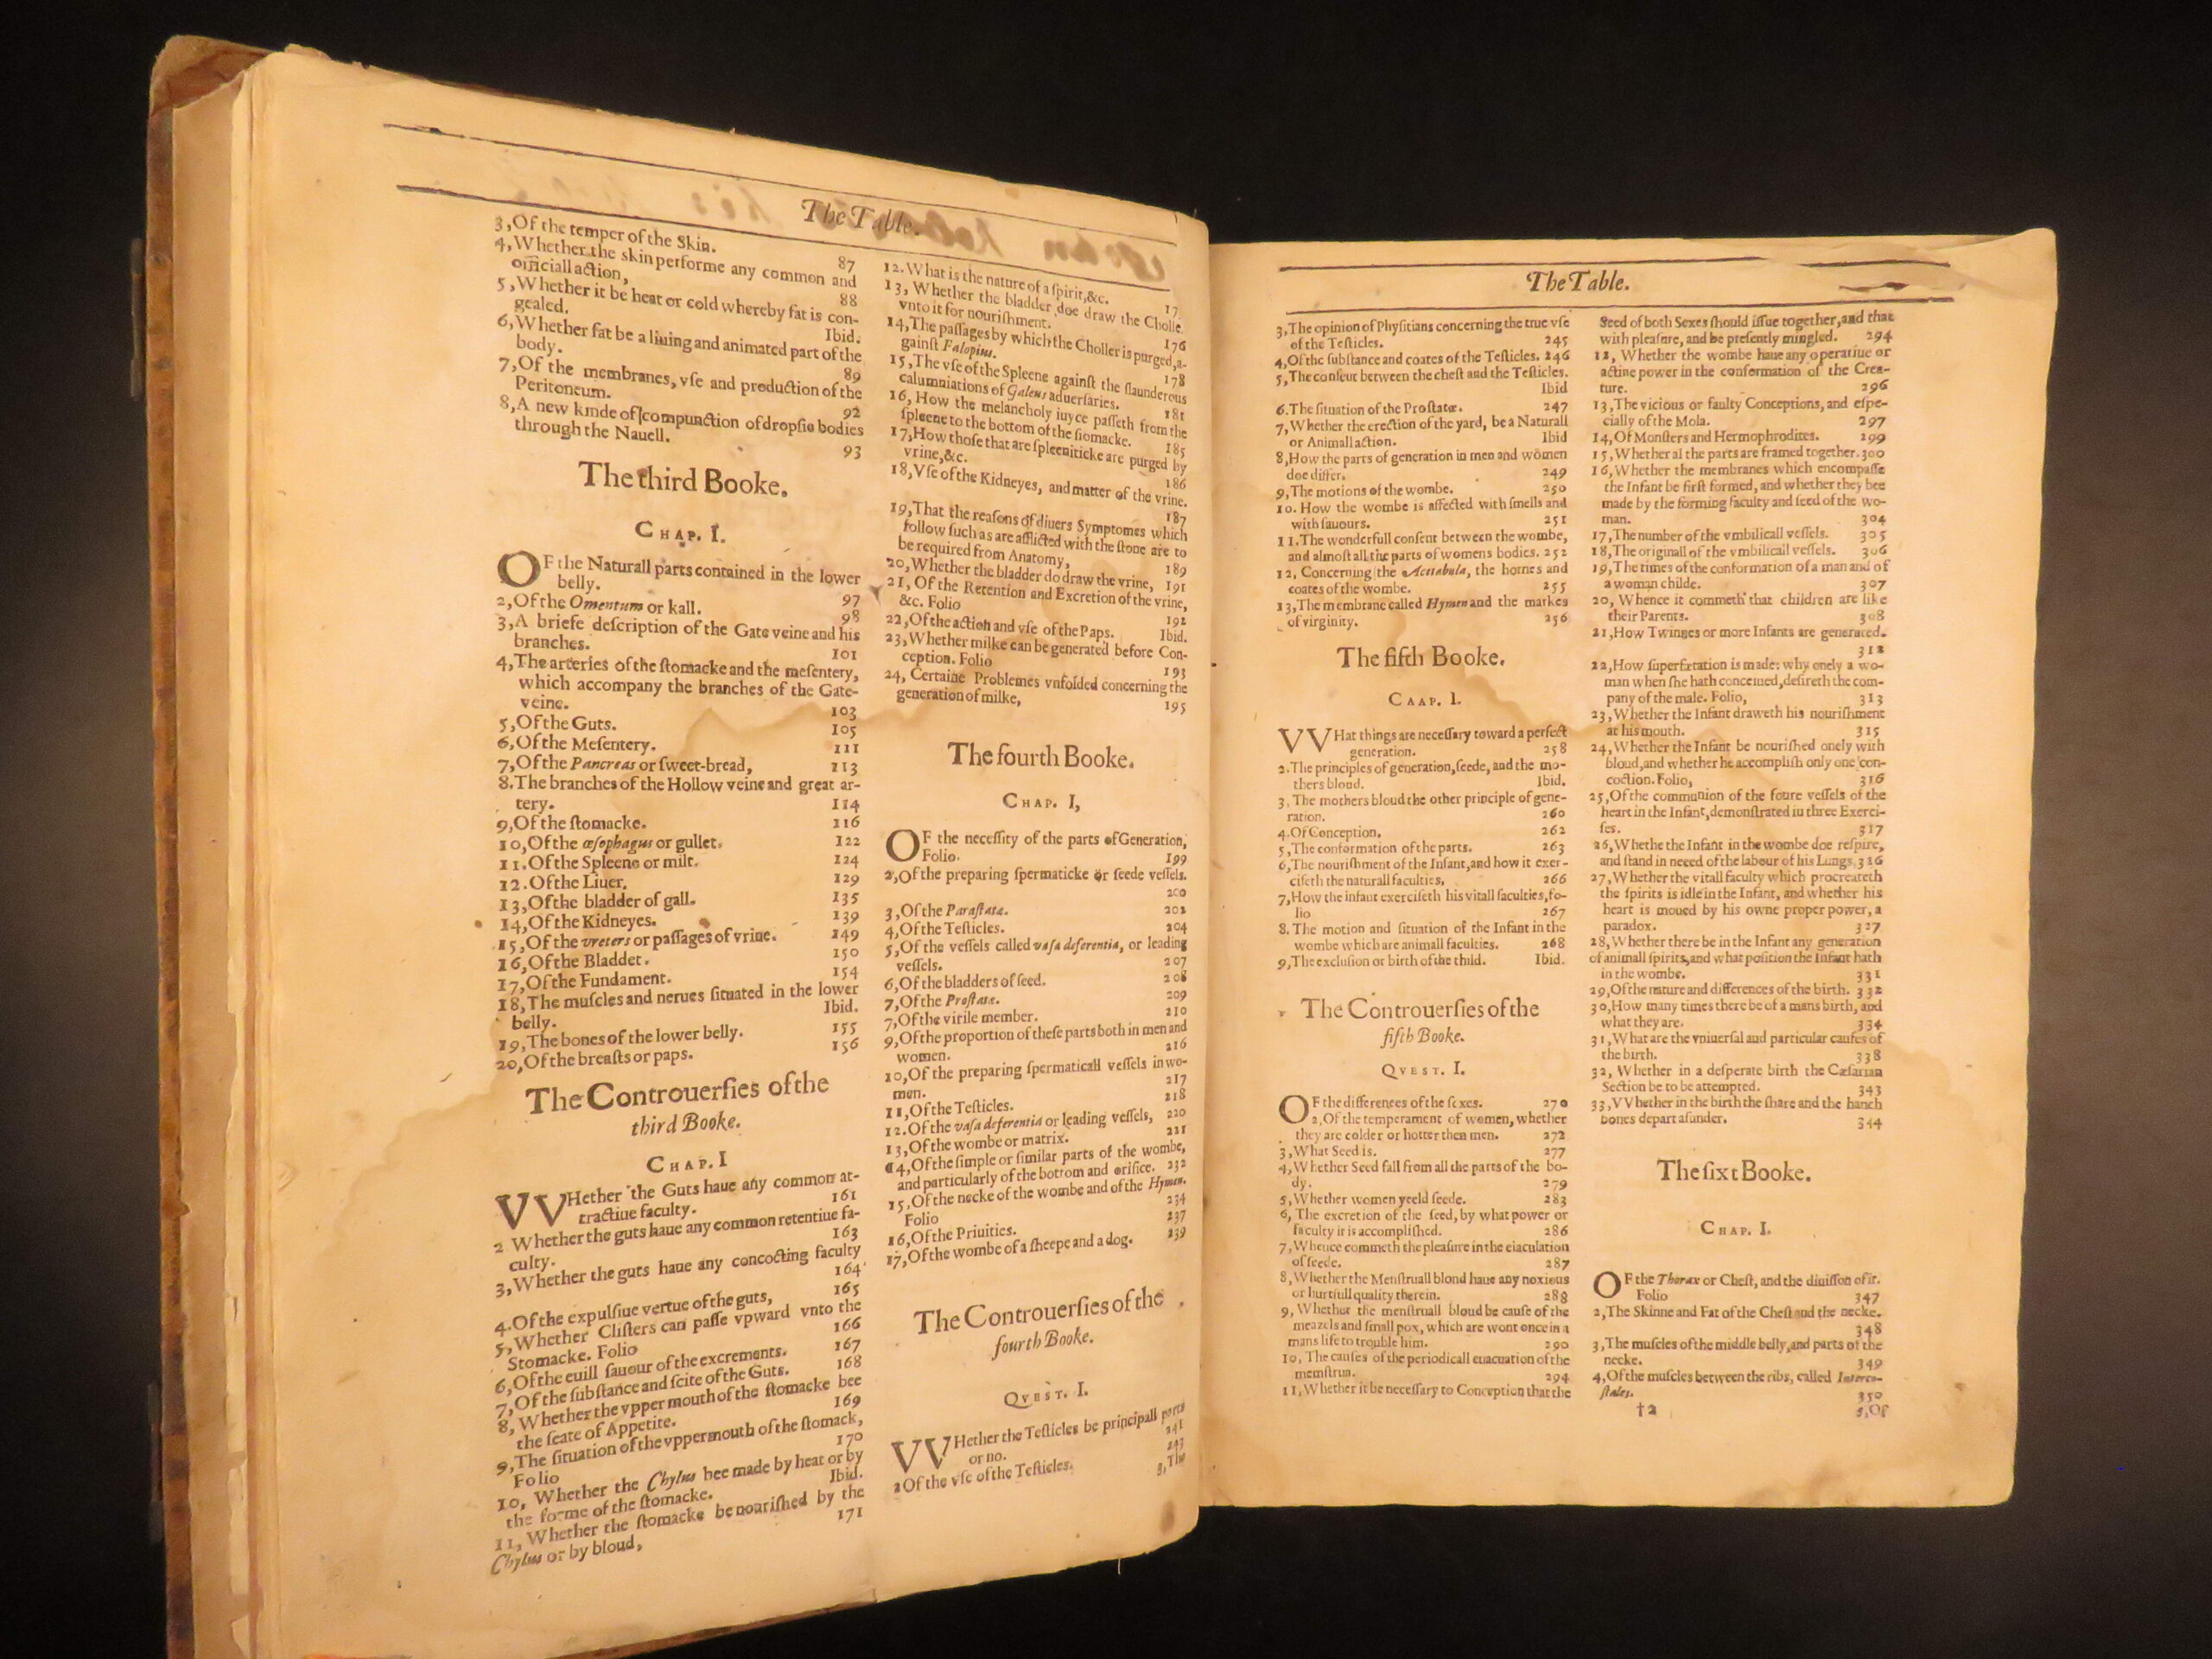 The Table.
3,Of the temper of the Skin.
87
4,Whether the skin performe any common and
officiall action,
88
5,Whether it be heat or cold whereby fat is con-
gealed.
Ibid.
6,Whether fat be a liuing and animated part of the
body.
89
7,Of the membranes, vse and production of the
Peritoneum.
92
8,A new kinde of compunction of dropsie bodies
through the Nauell.
93
The third Booke.
CHAP. I.
OF the Naturall parts contained in the lower
belly.
97
2,Of the Omentum or kall.
98
3,A briefe description of the Gate veine and his
branches.
101
4,The arteries of the stomacke and the mesentery,
which accompany the branches of the Gate-
veine.
103
5,Of the Guts.
105
6,Of the Mesentery.
111
7,Of the Pancreas or sweet-bread,
113
8.The branches of the Hollow veine and great ar-
tery.
114
9,Of the stomacke.
116
10,Of the œsophagus or gullet.
122
11.Of the Spleene or milt.
124
12.Of the Liuer.
129
13,Of the bladder of gall.
135
14,Of the Kidneyes.
139
15,Of the vreters or passages of vrine.
149
16,Of the Bladdet.
150
17,Of the Fundament.
154
18,The muscles and nerues situated in the lower
belly.
Ibid.
19,The bones of the lower belly.
155
20,Of the breasts or paps.
156
The Controuersies of the
third Booke.
CHAP. I
WHether the Guts haue any common at-
tractiue faculty.
161
2 Whether the guts haue any common retentiue fa-
culty.
163
3,Whether the guts haue any concocting faculty
164
4.Of the expulsiue vertue of the guts,
165
5,Whether Clisters can passe vpward vnto the
Stomacke. Folio
166
6,Of the euill sauour of the excrements.
167
7,Of the substance and scite of the Guts.
168
8,Whether the vpper mouth of the stomacke bee
the seate of Appetite.
169
9,The situation of the vpper mouth of the stomack,
Folio
170
10, Whether the Chylus bee made by heat or by
the forme of the stomacke.
Ibid.
11, Whether the stomacke be nourished by the
Chylus or by bloud,
171
12.What is the nature of a spirit,&c.
17
13, Whether the bladder doe draw the Choller
vnto it for nourishment.
176
14,The passages by which the Choller is purged,a-
gainst Falopius.
178
15,The vse of the Spleene against the slaunderous
calumniations of Galens aduersaries.
181
16, How the melancholy iuyce passeth from the
spleene to the bottom of the stomacke.
185
17,How those that are spleeniticke are purged by
vrine,&c.
186
18,Vse of the Kidneyes, and matter of the vrine.
187
19,That the reasons of diuers Symptomes which
follow such as are afflicted with the stone are to
be required from Anatomy,
189
20,Whether the bladder do draw the vrine,
191
21, Of the Retention and Excretion of the vrine,
&c. Folio
192
22,Of the action and vse of the Paps.
Ibid.
23,Whether milke can be generated before Con-
ception. Folio
193
24, Certaine Problemes vnfolded concerning the
generation of milke,
195
The fourth Booke.
CHAP. I,
OF the necessity of the parts of Generation,
Folio.
199
2,Of the preparing spermaticke or seede vessels.
200
3,Of the Parastatæ.
202
4,Of the Testicles.
204
5,Of the vessels called vasa deferentia, or leading
vessels.
207
6,Of the bladders of seed.
208
7,Of the Prostatæ.
209
7,Of the virile member.
210
9,Of the proportion of these parts both in men and
women.
216
10,Of the preparing spermaticall vessels in wo-
men.
217
11,Of the Testicles.
218
12.Of the vasa deferentia or leading vessels,
220
13,Of the wombe or matrix.
221
14,Of the simple or similar parts of the wombe,
and particularly of the bottom and orifice.
232
15,Of the necke of the wombe and of the Hymen.
Folio
234
16,Of the Priuities.
237
17,Of the wombe of a sheepe and a dog.
239
The Controuersies of the
fourth Booke.
QVEST. I.
WHether the Testicles be principall parts
or no.
241
2 Of the vse of the Testicles.
243
3,The
The Table.
3,The opinion of Physitians concerning the true vse
of the Testicles. 245
4,Of the substance and coates of the Testicles. 246
5,The consent between the chest and the Testicles.
Ibid
6.The situation of the Prostatæ. 247
7,Whether the erection of the yard, be a Naturall
or Animall action. Ibid
8,How the parts of generation in men and women
doe differ. 249
9,The motions of the wombe. 250
10. How the wombe is affected with smells and
with sauours. 251
11.The wonderfull consent between the wombe,
and almost all the parts of womens bodies. 252
12, Concerning the Acetabula, the hornes and
coates of the wombe. 255
13,The membrane called Hymen and the markes
of virginity. 256
The fifth Booke.
CAAP. I.
WHat things are necessary toward a perfect
generation. 258
2.The principles of generation,seede, and the mo-
thers bloud. Ibid.
3. The mothers bloud the other principle of gene-
ration. 260
4.Of Conception. 262
5,The conformation of the parts. 263
6,The nourishment of the Infant,and how it exer-
ciseth the naturall faculties. 266
7,How the infant exerciseth his vitall faculties,fo-
lio 267
8. The motion and situation of the Infant in the
wombe which are animall faculties. 268
9,The exclusion or birth of the child. Ibid.
The Controuersies of the
fifth Booke.
QVEST. I.
OF the differences of the sexes. 270
2,Of the temperament of women, whether
they are colder or hotter then men. 272
3,What Seed is. 277
4,Whether Seed fall from all the parts of the bo-
dy. 279
5,Whether women yeeld seede. 283
6, The excretion of the seed, by what power or
faculty it is accomplished. 286
7,Whence commeth the pleasure in the eiaculation
of seede. 287
8,Whether the Menstruall bloud haue any noxious
or hurtfull quality therein. 288
9, Whether the menstruall bloud be cause of the
meazels and small pox, which are wont once in a
mans life to trouble him. 290
10, The causes of the periodicall euacuation of the
menstrua. 294
11,Whether it be necessary to Conception that the
Seed of both Sexes should issue together,and that
with pleasure, and be presently mingled. 294
12, Whether the wombe haue any operatiue or
actiue power in the conformation of the Crea-
ture. 296
13,The vicious or faulty Conceptions, and espe-
cially of the Mola. 297
14,Of Monsters and Hermophrodites. 299
15,Whether al the parts are framed together. 300
16,Whether the membranes which encompasse
the Infant be first formed, and whether they bee
made by the forming faculty and seed of the wo-
man. 304
17,The number of the vmbilicall vessels. 305
18,The originall of the vmbilicall vessels. 306
19,The times of the conformation of a man and of
a woman childe. 307
20, Whence it commeth that children are like
their Parents. 308
21,How Twinnes or more Infants are generated.
312
22,How superfœtation is made: why onely a wo-
man when she hath conceiued,desireth the com-
pany of the male. Folio, 313
23,Whether the Infant draweth his nourishment
at his mouth. 315
24,Whether the Infant be nourished onely with
bloud,and whether he accomplish only one con-
coction. Folio, 316
25,Of the communion of the foure vessels of the
heart in the Infant,demonstrated in three Exerci-
ses. 317
26,Whethe the Infant in the wombe doe respire,
and stand in neced of the labour of his Lungs. 326
27,Whether the vitall faculty which procreateth
the spirits is idle in the Infant, and whether his
heart is moued by his owne proper power, a
paradox. 327
28,Whether there be in the Infant any generation
of animall spirits,and what position the Infant hath
in the wombe. 331
29,Of the nature and differences of the birth. 332
30,How many times there be of a mans birth, and
what they are. 334
31,What are the vniuersal and particular causes of
the birth. 338
32, Whether in a desperate birth the Cæsarian
Section be to be attempted. 343
33,VVhether in the birth the share and the hanch
bones depart asunder. 344
The sixt Booke.
CHAP. I.
OF the Thorax or Chest, and the diuision of it.
Folio 347
2,The Skinne and Fat of the Chest and the necke.
348
3,The muscles of the middle belly,and parts of the
necke. 349
4,Of the muscles between the ribs, called Interco-
stales. 350
†2
5,Of